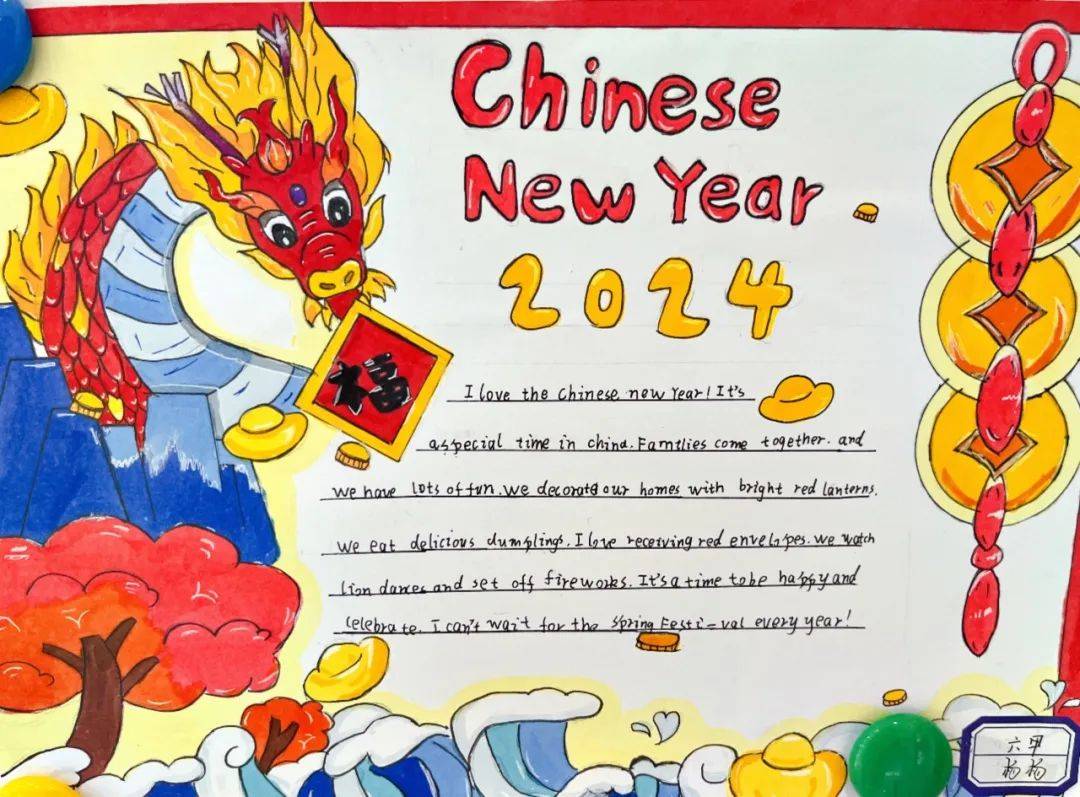 Chinese
New Year
2024
福
I love the Chinese new Year! It's
a special time in china. Families come together. and
we have lots of fun. we decorate our homes with bright red lanterns.
we eat delicious dumplings. I love receiving red envelopes. we watch
lion dances and set off fireworks. It's a time to be happy and
celebrate. I can't wait for the Spring Festi-val every year!
六甲
杨杨